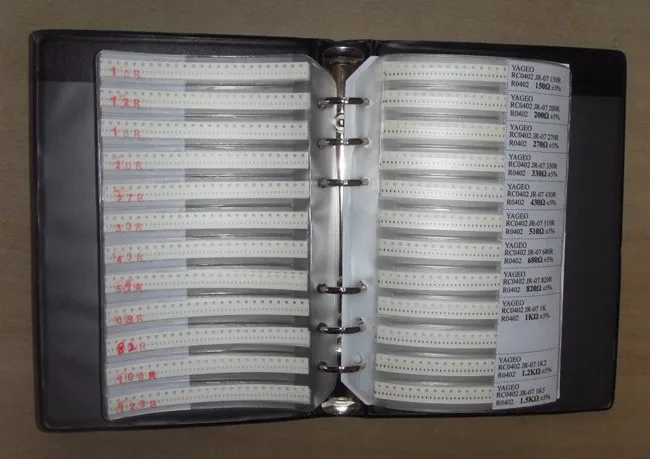 10R
12R
20R
27R
33R
43R
68R
82R
100R
YAGEO
RC0402 JR-07 150R
R0402 150Ω ±5%
YAGEO
RC0402 JR-07 200R
R0402 200Ω ±5%
YAGEO
RC0402 JR-07 270R
R0402 270Ω ±5%
YAGEO
RC0402 JR-07 330R
R0402 330Ω ±5%
YAGEO
RC0402 JR-07 430R
R0402 430Ω ±5%
YAGEO
RC0402 JR-07 510R
R0402 510Ω ±5%
YAGEO
RC0402 JR-07 680R
R0402 680Ω ±5%
YAGEO
RC0402 JR-07 820R
R0402 820Ω ±5%
YAGEO
RC0402 JR-07 1K
R0402 1KΩ ±5%
YAGEO
RC0402 JR-07 1K2
R0402 1.2KΩ ±5%
YAGEO
RC0402 JR-07 1K5
R0402 1.5KΩ ±5%